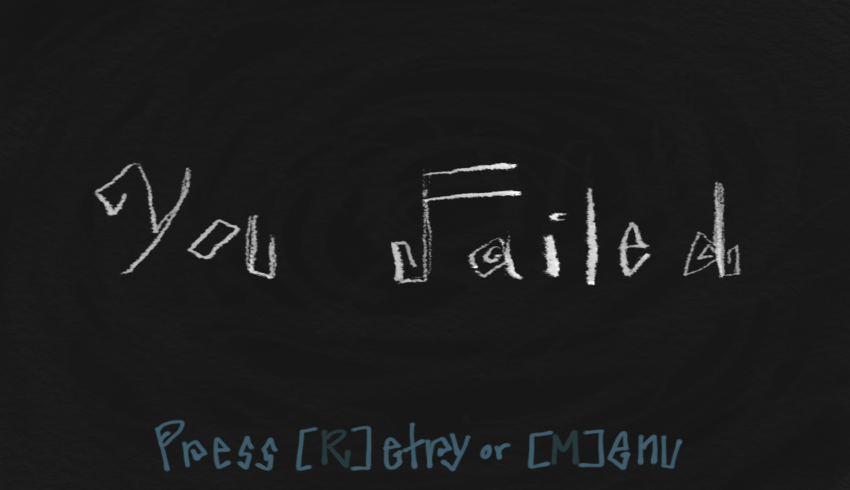 You Failed
Press [R]etry or [M]enu